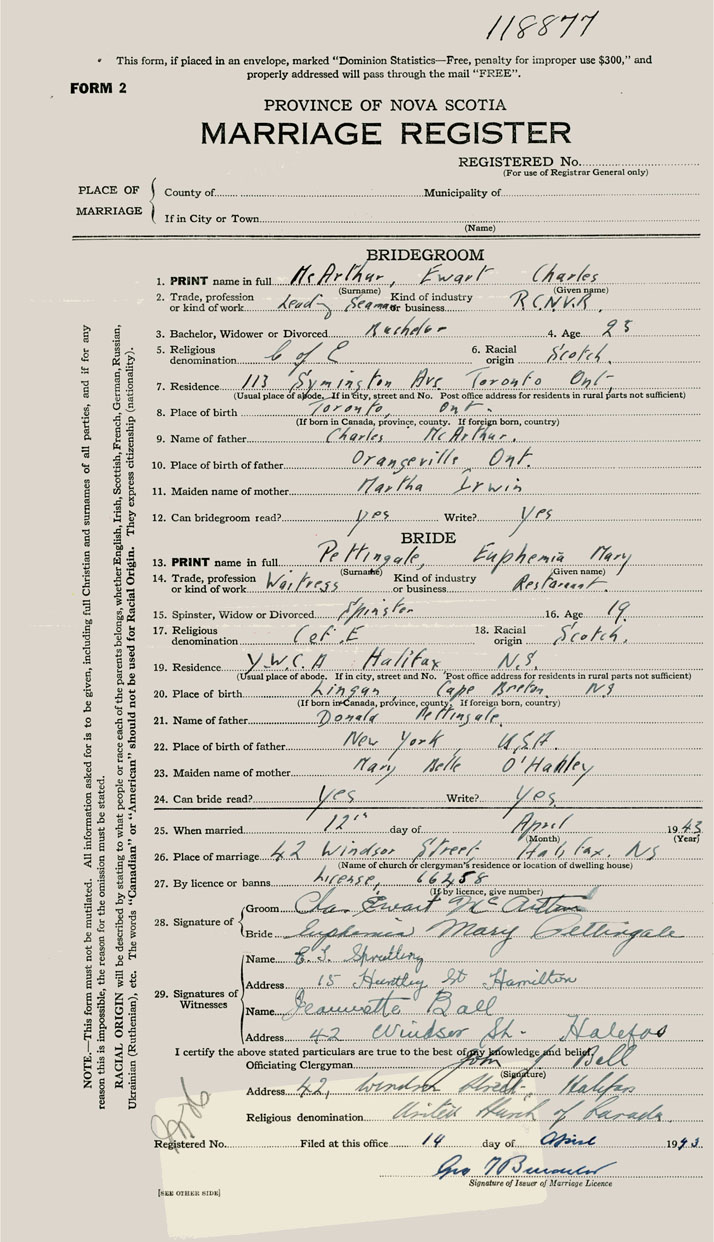 118877
This form, if placed in an envelope, marked "Dominion Statistics—Free, penalty for improper use $300," and
properly addressed will pass through the mail "FREE".
FORM 2
PROVINCE OF NOVA SCOTIA
MARRIAGE REGISTER
REGISTERED No.
(For use of Registrar General only)
PLACE OF MARRIAGE
County of Municipality of
If in City or Town
(Name)
BRIDEGROOM
1. PRINT name in full McArthur, Ewart Charles
(Surname) (Given name)
2. Trade, profession or kind of work Leading Seaman Kind of industry or business R.C.N.V.R.
3. Bachelor, Widower or Divorced Bachelor 4. Age 23
5. Religious denomination C of E 6. Racial origin Scotch.
7. Residence 113 Symington Ave Toronto Ont.
(Usual place of abode. If in city, street and No. Post office address for residents in rural parts not sufficient)
8. Place of birth Toronto, Ont.
(If born in Canada, province, county. If foreign born, country)
9. Name of father Charles McArthur.
10. Place of birth of father Orangeville Ont.
11. Maiden name of mother Martha Irwin
12. Can bridegroom read? yes Write? yes
BRIDE
13. PRINT name in full Pettingale, Euphemia Mary
(Surname) (Given name)
14. Trade, profession or kind of work Waitress Kind of industry or business Restaurant.
15. Spinster, Widow or Divorced Spinster 16. Age 19.
17. Religious denomination C of E 18. Racial origin Scotch.
19. Residence Y.W.C.A Halifax N.S.
(Usual place of abode. If in city, street and No. Post office address for residents in rural parts not sufficient)
20. Place of birth Lingan, Cape Breton NS
(If born in Canada, province, county. If foreign born, country)
21. Name of father Donald Pettingale
22. Place of birth of father New York U.S.A.
23. Maiden name of mother Mary Belle O'Handley
24. Can bride read? yes Write? yes
25. When married 12th day of April 1943
(Month) (Year)
26. Place of marriage 42 Windsor Street Halifax. NS
(Name of church or clergyman's residence or location of dwelling house)
27. By licence or banns License, 66258
(If by licence, give number)
28. Signature of
Groom Chas Ewart McArthur
Bride Euphemia Mary Pettingale
29. Signatures of Witnesses
Name
Address 15 Huntley St Hamilton
Name Jeannette Ball
Address 42 Windsor St. Halifax
I certify the above stated particulars are true to the best of my knowledge and belief.
Officiating Clergyman John J Bell
(Signature)
Address 42, Windsor Street, Halifax
Religious denomination United Church of Canada.
Registered No. Filed at this office 14 day of April 1943
Signature of Issuer of Marriage Licence
[SEE OTHER SIDE]
NOTE.—This form must not be mutilated. All information asked for is to be given, including full Christian and surnames of all parties, and if for any
reason this is impossible, the reason for the omission must be stated.
RACIAL ORIGIN will be described by stating to what people or race each of the parents belongs, whether English, Irish, Scottish, French, German, Russian,
Ukrainian (Ruthenian), etc. The words "Canadian" or "American" should not be used for Racial Origin. They express citizenship (nationality).